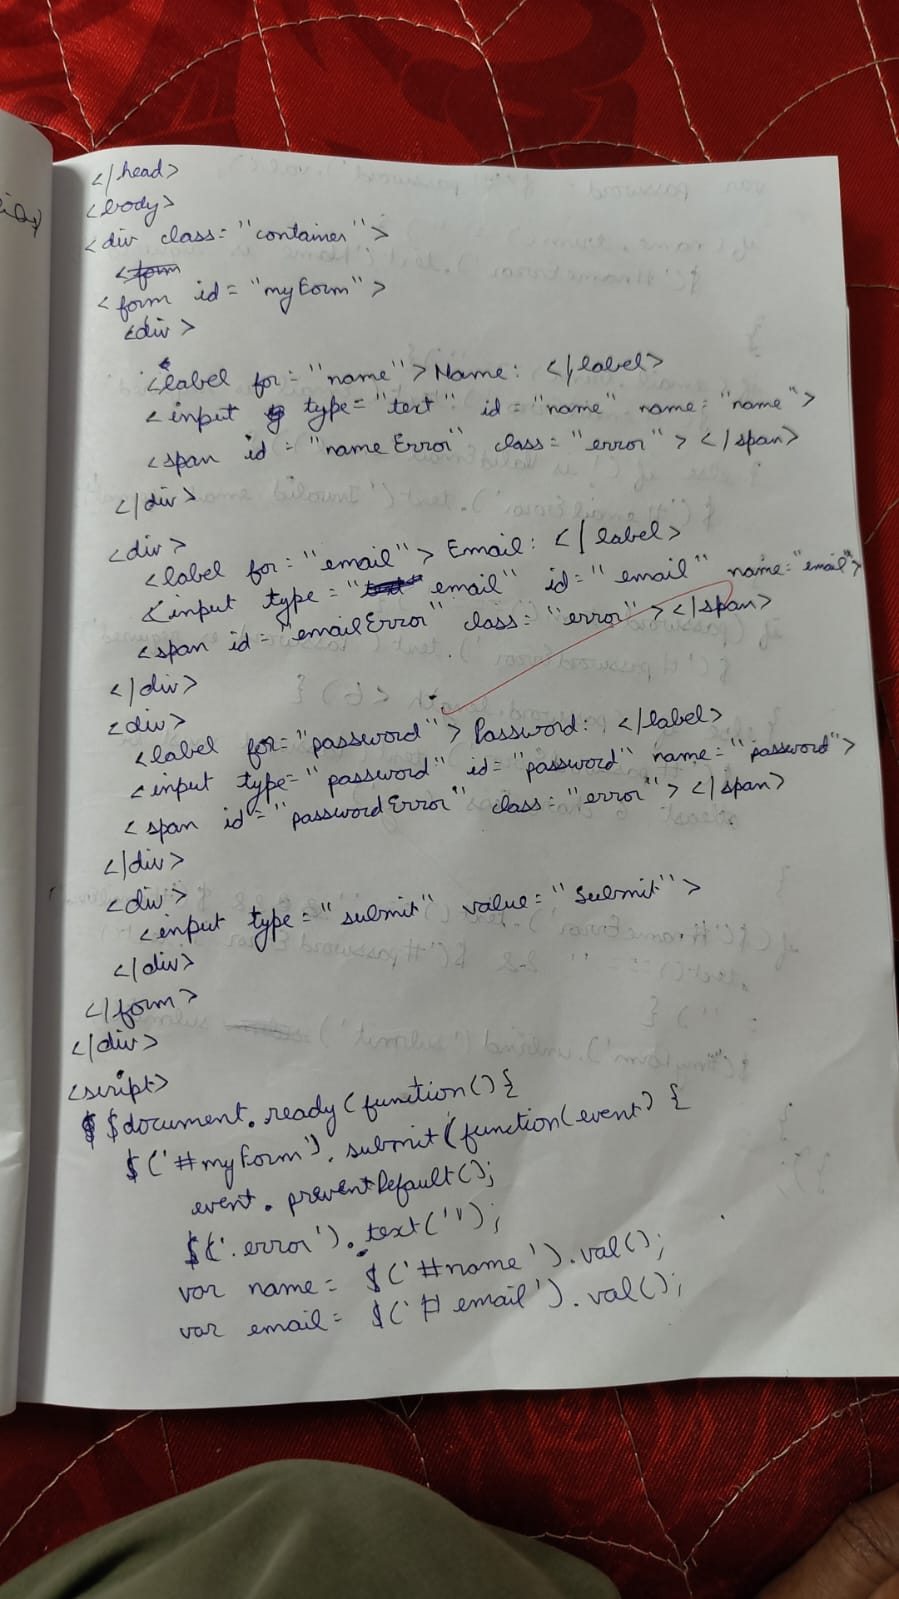 </head>
<body>
<div class="container">
<form
<form id="myForm">
<div>
<label for="name">Name: </label>
<input type="text" id="name" name="name">
<span id="nameError" class="error"></span>
</div>
<div>
<label for="email">Email: </label>
<input type="email" id="email" name="email">
<span id="emailError" class="error"></span>
</div>
<div>
<label for="password">Password: </label>
<input type="password" id="password" name="password">
<span id="passwordError" class="error"></span>
</div>
<div>
<input type="submit" value="Submit">
</div>
</form>
</div>
<script>
$document.ready(function(){
$('#myForm').submit(function(event) {
event.preventDefault();
$('.error').text('');
var name = $('#name').val();
var email = $('#email').val();